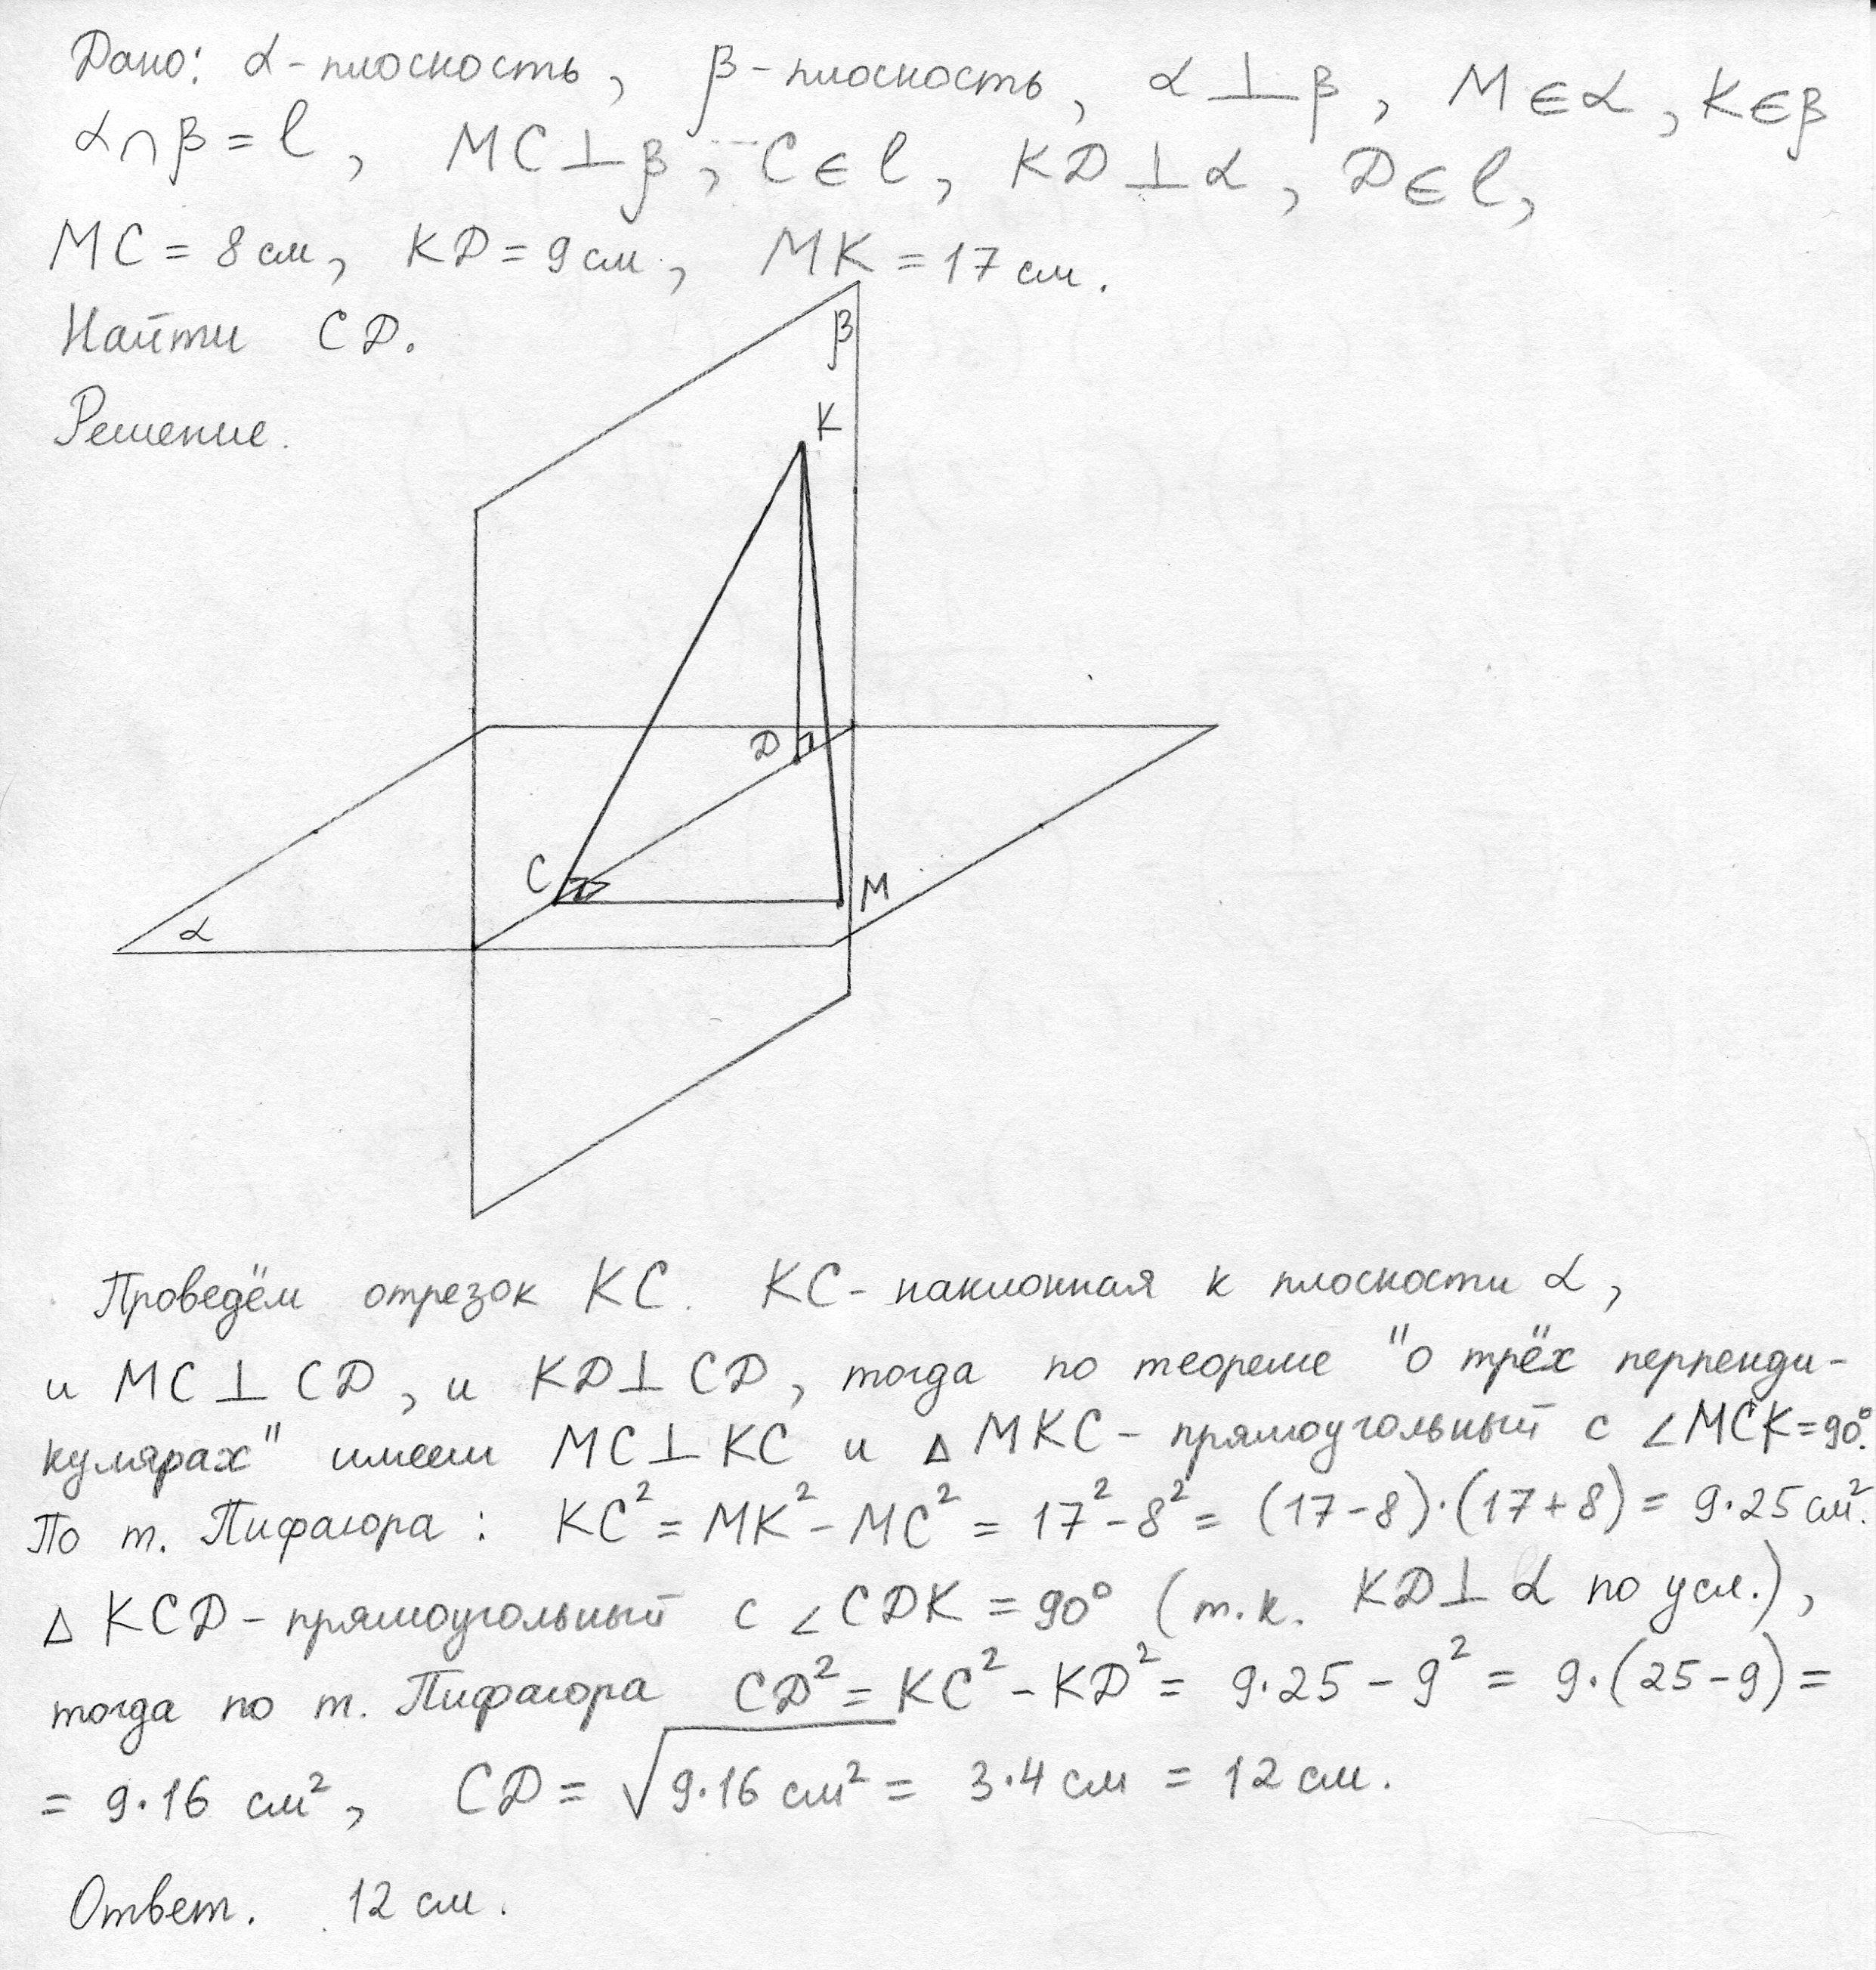 Дано: α-плоскость, β-плоскость, α⊥β, M∈α, K∈β
α∩β=l, MC⊥β, C∈l, KD⊥α, D∈l,
MC = 8 см, KD = 9 см, MK = 17 см.
Найти CD.
Решение.
β
K
D
C
M
α
Проведём отрезок KC. KC-наклонная к плоскости α,
и MC⊥CD, и KD⊥CD, тогда по теореме "о трёх перпенди-
кулярах" имеем MC⊥KC и △MKC-прямоугольный с ∠MCK=90°.
По т. Пифагора: KC²=MK²-MC²=17²-8²=(17-8)·(17+8)=9·25 см².
△KCD-прямоугольный с ∠CDK=90° (т.к. KD⊥α по усл.),
тогда по т. Пифагора CD²=KC²-KD²=9·25-9²=9·(25-9)=
=9·16 см², CD=√9·16 см²=3·4 см=12 см.
Ответ. 12 см.